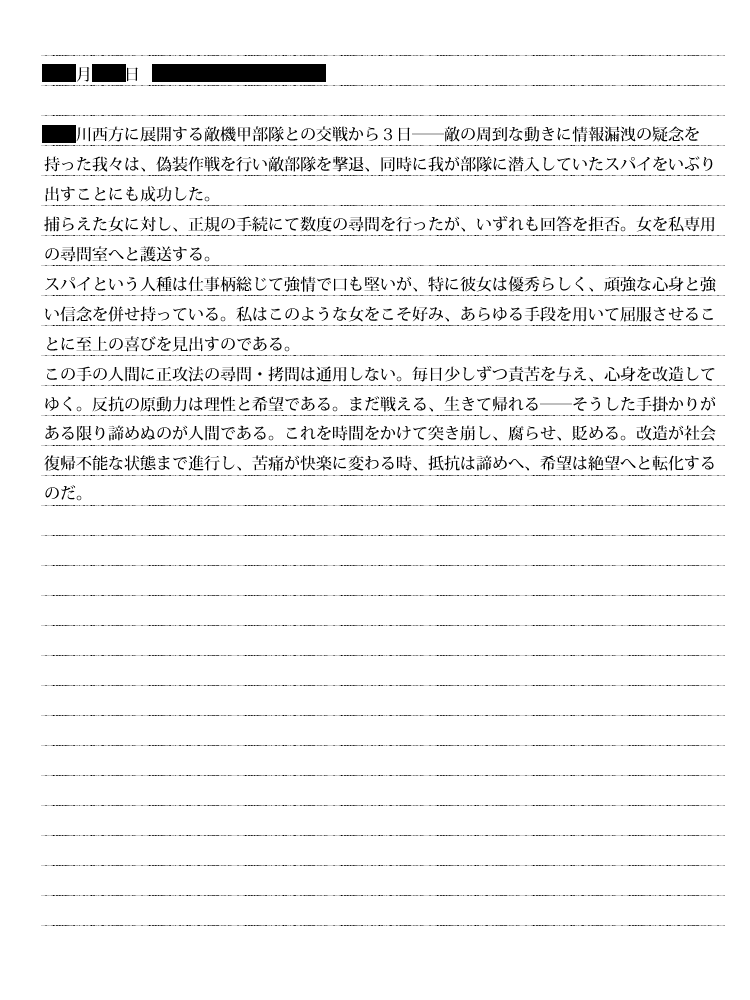 月　日
川西方に展開する敵機甲部隊との交戦から３日――敵の周到な動きに情報漏洩の疑念を
持った我々は、偽装作戦を行い敵部隊を撃退、同時に我が部隊に潜入していたスパイをいぶり
出すことにも成功した。
捕らえた女に対し、正規の手続にて数度の尋問を行ったが、いずれも回答を拒否。女を私専用
の尋問室へと護送する。
スパイという人種は仕事柄総じて強情で口も堅いが、特に彼女は優秀らしく、頑強な心身と強
い信念を併せ持っている。私はこのような女をこそ好み、あらゆる手段を用いて屈服させるこ
とに至上の喜びを見出すのである。
この手の人間に正攻法の尋問・拷問は通用しない。毎日少しずつ責苦を与え、心身を改造して
ゆく。反抗の原動力は理性と希望である。まだ戦える、生きて帰れる――そうした手掛かりが
ある限り諦めぬのが人間である。これを時間をかけて突き崩し、腐らせ、貶める。改造が社会
復帰不能な状態まで進行し、苦痛が快楽に変わる時、抵抗は諦めへ、希望は絶望へと転化する
のだ。